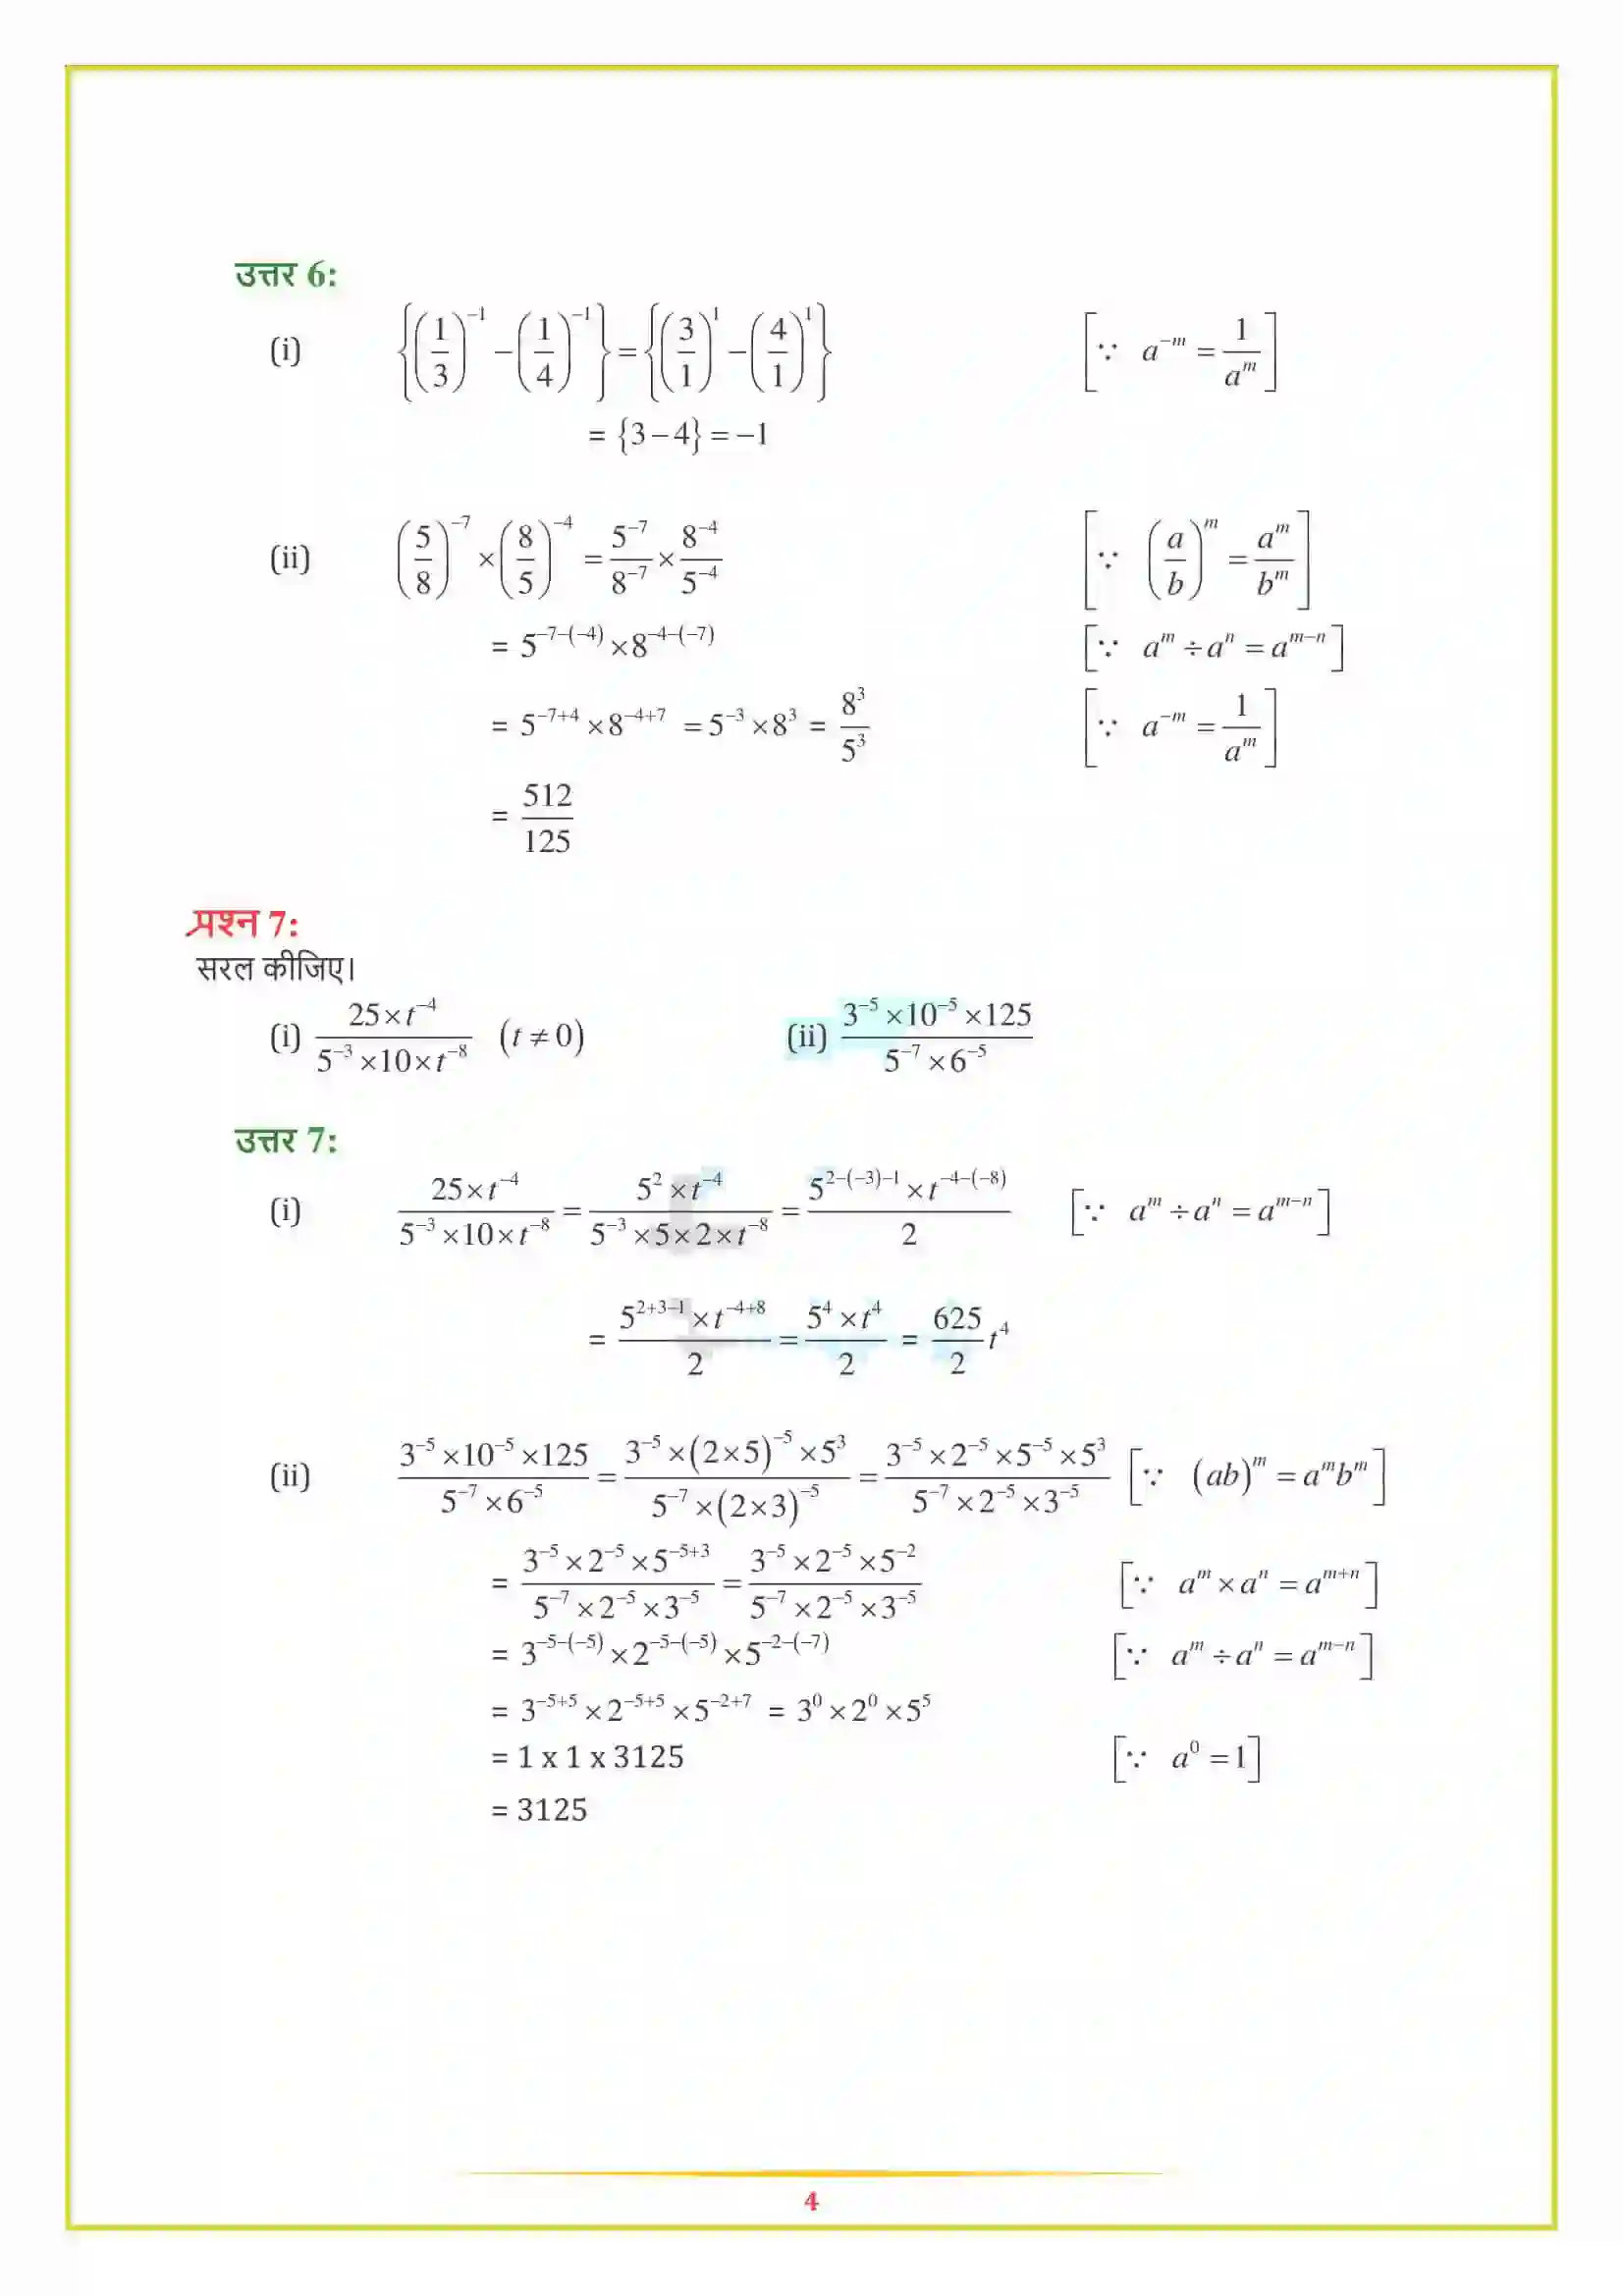 उत्तर 6:
(i) {(1/3)⁻¹ − (1/4)⁻¹} = {(3/1)¹ − (4/1)¹} [∵ a⁻ᵐ = 1/aᵐ]
= {3 − 4} = −1
(ii) (5/8)⁻⁷ × (8/5)⁻⁴ = 5⁻⁷/8⁻⁷ × 8⁻⁴/5⁻⁴ [∵ (a/b)ᵐ = aᵐ/bᵐ]
= 5⁻⁷⁻⁽⁻⁴⁾ × 8⁻⁴⁻⁽⁻⁷⁾ [∵ aᵐ ÷ aⁿ = aᵐ⁻ⁿ]
= 5⁻⁷⁺⁴ × 8⁻⁴⁺⁷ = 5⁻³ × 8³ = 8³/5³ [∵ a⁻ᵐ = 1/aᵐ]
= 512/125
प्रश्न 7:
सरल कीजिए।
(i) (25 × t⁻⁴)/(5⁻³ × 10 × t⁻⁸) (t ≠ 0) (ii) (3⁻⁵ × 10⁻⁵ × 125)/(5⁻⁷ × 6⁻⁵)
उत्तर 7:
(i) (25 × t⁻⁴)/(5⁻³ × 10 × t⁻⁸) = (5² × t⁻⁴)/(5⁻³ × 5 × 2 × t⁻⁸) = (5²⁻⁽⁻³⁾⁻¹ × t⁻⁴⁻⁽⁻⁸⁾)/2 [∵ aᵐ ÷ aⁿ = aᵐ⁻ⁿ]
= (5²⁺³⁻¹ × t⁻⁴⁺⁸)/2 = (5⁴ × t⁴)/2 = 625/2 t⁴
(ii) (3⁻⁵ × 10⁻⁵ × 125)/(5⁻⁷ × 6⁻⁵) = (3⁻⁵ × (2 × 5)⁻⁵ × 5³)/(5⁻⁷ × (2 × 3)⁻⁵) = (3⁻⁵ × 2⁻⁵ × 5⁻⁵ × 5³)/(5⁻⁷ × 2⁻⁵ × 3⁻⁵) [∵ (ab)ᵐ = aᵐbᵐ]
= (3⁻⁵ × 2⁻⁵ × 5⁻⁵⁺³)/(5⁻⁷ × 2⁻⁵ × 3⁻⁵) = (3⁻⁵ × 2⁻⁵ × 5⁻²)/(5⁻⁷ × 2⁻⁵ × 3⁻⁵) [∵ aᵐ × aⁿ = aᵐ⁺ⁿ]
= 3⁻⁵⁻⁽⁻⁵⁾ × 2⁻⁵⁻⁽⁻⁵⁾ × 5⁻²⁻⁽⁻⁷⁾ [∵ aᵐ ÷ aⁿ = aᵐ⁻ⁿ]
= 3⁻⁵⁺⁵ × 2⁻⁵⁺⁵ × 5⁻²⁺⁷ = 3⁰ × 2⁰ × 5⁵
= 1 x 1 x 3125 [∵ a⁰ = 1]
= 3125
4